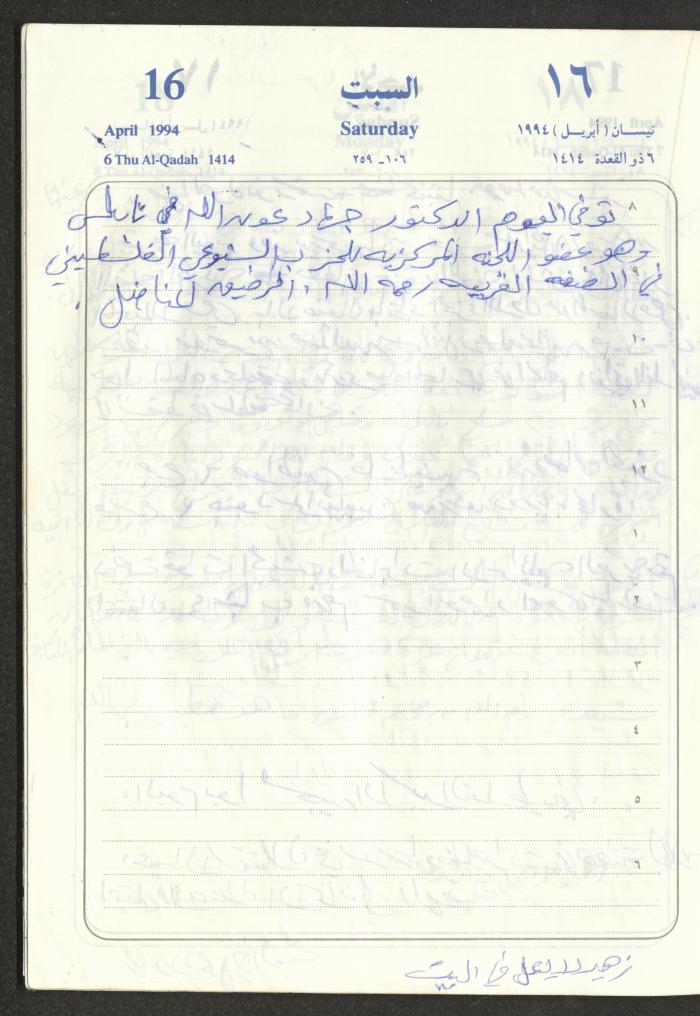 16 السبت ١٦
April 1994 Saturday نيسان (أبريل) ١٩٩٤
6 Thu Al-Qadah 1414 ١٠٦-٢٥٩ ٦ ذو القعدة ١٤١٤
٨ توفي اليوم الدكتور جهاد عون الله في نابلس
وهو عضو اللجنه المركزيه للحزب الشيوعي الفلسطيني
٩
في الضفه الغربيه رحمه الله، الرفيق المناضل.
١٠
١١
١٢
١
٢
٣
٤
٥
٦
زهير لا يعمل في البيت